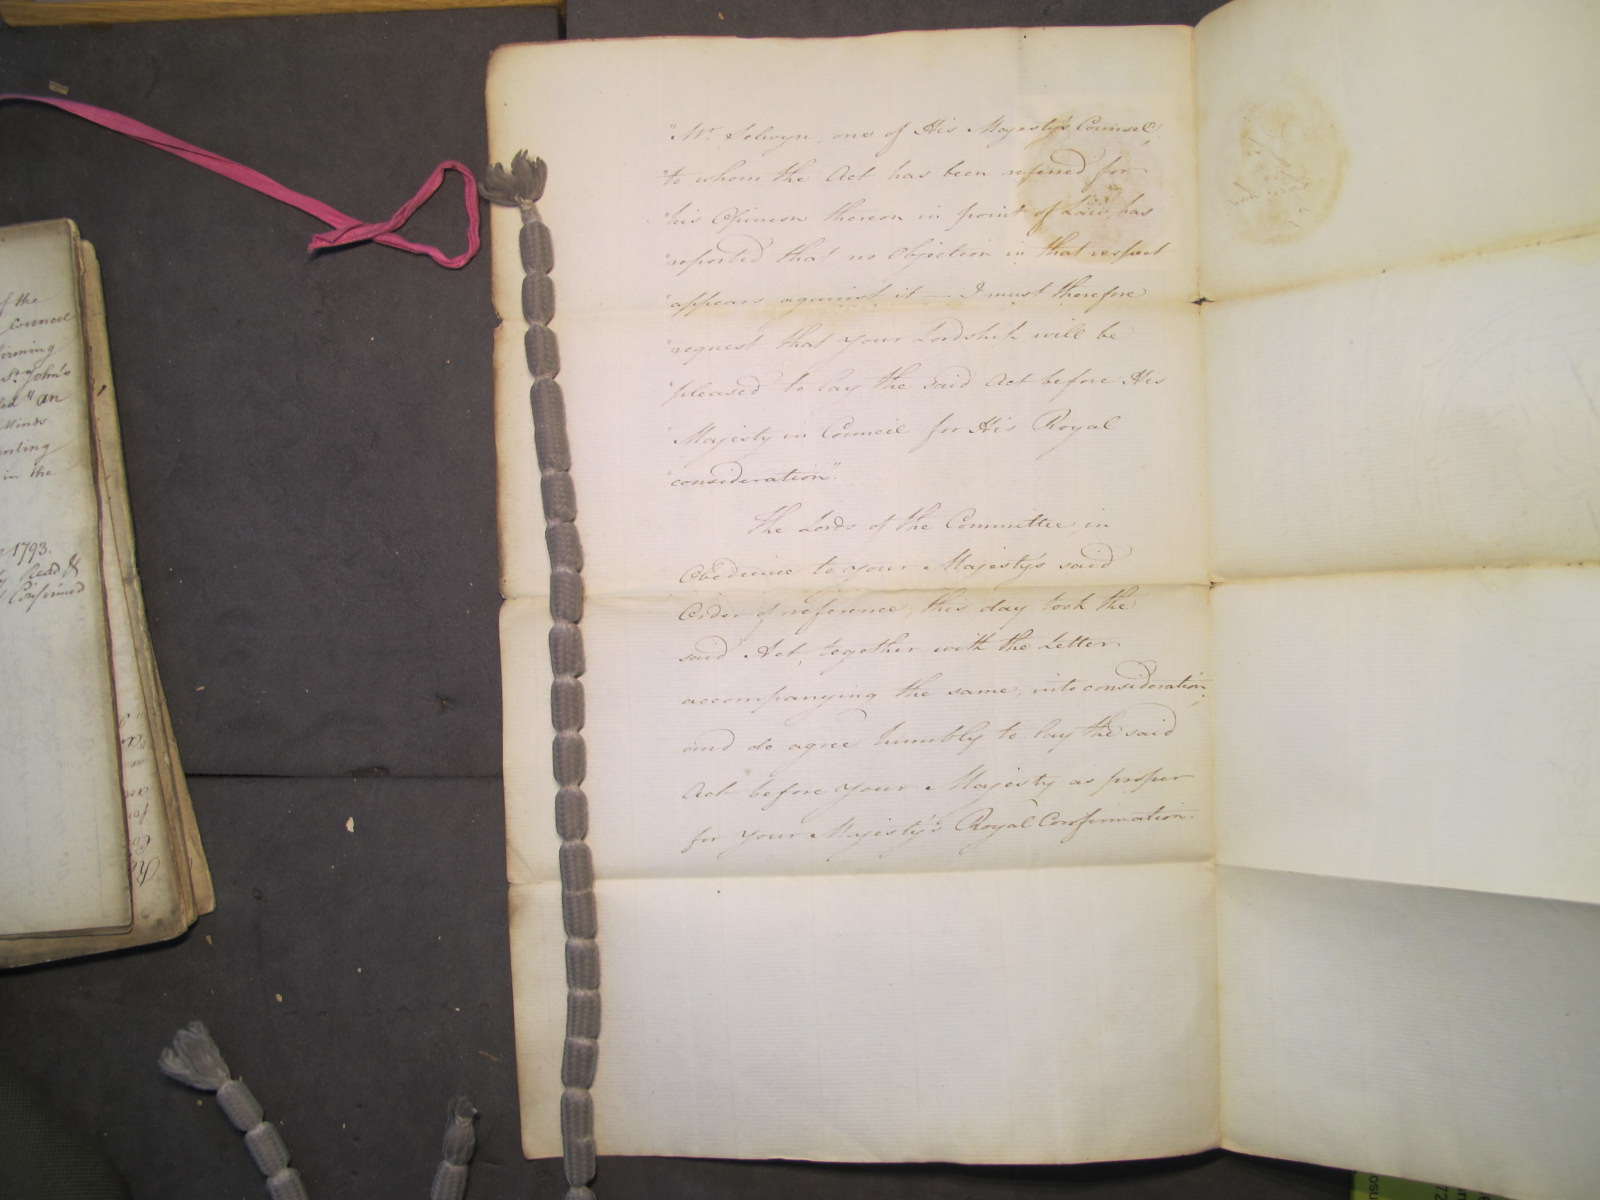 f the
Council
firming
St. John's
led "An
Minds
nting
in the
1793.
Read &
Confirmed
"Mr. Selwyn, one of His Majesty's Counsel,
"to whom the Act has been referred for
"his Opinion thereon in point of Law, has
"reported that no Objection in that respect
"appears against it — I must therefore
"request that Your Lordship will be
"pleased to lay the said Act before His
"Majesty in Council for His Royal
"consideration".
The Lords of the Committee, in
Obedience to Your Majesty's said
Order of reference, this day took the
said Act, together with the Letter
accompanying the same, into consideration,
and do agree humbly to lay the said
Act before Your Majesty as proper
for Your Majesty's Royal Confirmation.